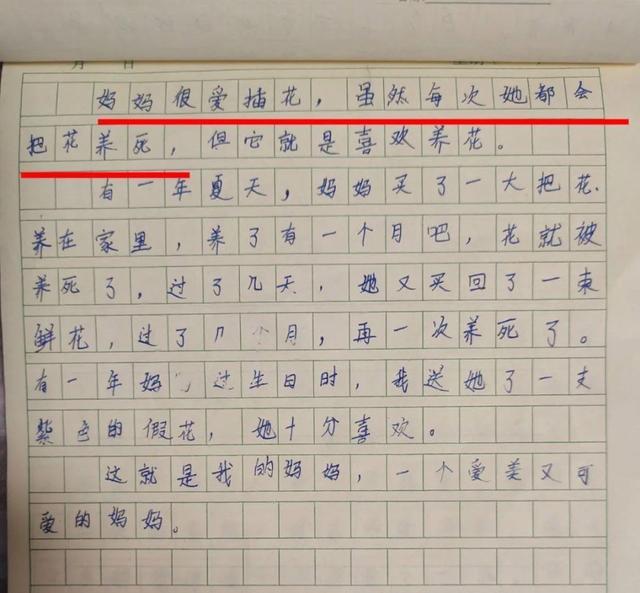 月 日
妈妈很爱插花，虽然每次她都会
把花养死，但它就是喜欢养花。
有一年夏天，妈妈买了一大把花.
养在家里，养了有一个月吧，花就被
养死了，过了几天，她又买回了一束
鲜花，过了几个月，再一次养死了。
有一年妈妈过生日时，我送她了一支
紫色的假花，她十分喜欢。
这就是我的妈妈，一个爱美又可
爱的妈妈。